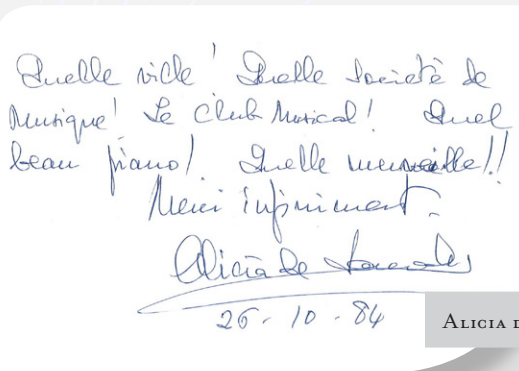 Quelle ville! Quelle Societè de
Musique! Le Club Musical! Quel
beau piano! Quelle merveille!!
Merci infiniment.
Alicia de Larrocha
26 - 10 - 84
ALICIA D